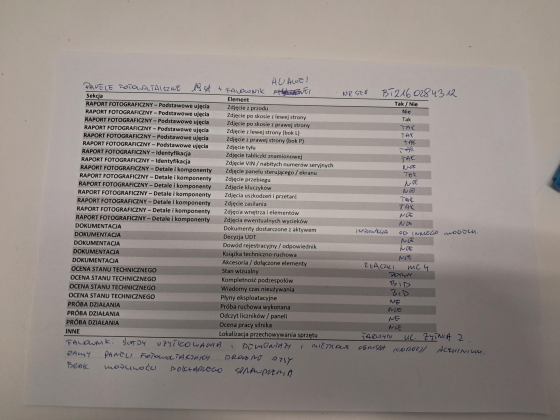 HUAWEI
PANELE FOTOWOLTAICZNE 19szt + FALOWNIK NR SER BT2160284312
Sekcja Element Tak / Nie
RAPORT FOTOGRAFICZNY – Podstawowe ujęcia Zdjęcie z przodu Nie
RAPORT FOTOGRAFICZNY – Podstawowe ujęcia Zdjęcie po skosie z lewej strony Tak
RAPORT FOTOGRAFICZNY – Podstawowe ujęcia Zdjęcie po skosie z prawej strony TAK
RAPORT FOTOGRAFICZNY – Podstawowe ujęcia Zdjęcie z lewej strony (bok L) TAK
RAPORT FOTOGRAFICZNY – Podstawowe ujęcia Zdjęcie z prawej strony (bok P) TAK
RAPORT FOTOGRAFICZNY – Podstawowe ujęcia Zdjęcie tyłu TAK
RAPORT FOTOGRAFICZNY – Identyfikacja Zdjęcie tabliczki znamionowej TAK
RAPORT FOTOGRAFICZNY – Identyfikacja Zdjęcie VIN / nabitych numerów seryjnych NIE
RAPORT FOTOGRAFICZNY – Detale i komponenty Zdjęcie panelu sterującego / ekranu TAK
RAPORT FOTOGRAFICZNY – Detale i komponenty Zdjęcie przebiegu NIE
RAPORT FOTOGRAFICZNY – Detale i komponenty Zdjęcie kluczyków NIE
RAPORT FOTOGRAFICZNY – Detale i komponenty Zdjęcie uszkodzeń i przetarć TAK
RAPORT FOTOGRAFICZNY – Detale i komponenty Zdjęcie zasilania TAK
RAPORT FOTOGRAFICZNY – Detale i komponenty Zdjęcia wnętrza i elementów NIE
RAPORT FOTOGRAFICZNY – Detale i komponenty Zdjęcia ewentualnych wycieków NIE
DOKUMENTACJA Dokumenty dostarczone z aktywem OD INNEGO MODELU
DOKUMENTACJA Decyzja UDT NIE
DOKUMENTACJA Dowód rejestracyjny / odpowiednik NIE
DOKUMENTACJA Książka techniczno-ruchowa NIE
DOKUMENTACJA Akcesoria / dołączone elementy ZŁĄCZKI MC4
OCENA STANU TECHNICZNEGO Stan wizualny
OCENA STANU TECHNICZNEGO Kompletność podzespołów B|D
OCENA STANU TECHNICZNEGO Wiadomy czas nieużywania B|D
OCENA STANU TECHNICZNEGO Płyny eksploatacyjne NIE
PRÓBA DZIAŁANIA Próba ruchowa wykonana NIE
PRÓBA DZIAŁANIA Odczyt liczników / paneli NIE
PRÓBA DZIAŁANIA Ocena pracy silnika NIE
INNE Lokalizacja przechowywania sprzętu UL. ŻYTNIA 2
FALOWNIK: ŚLADY UŻYTKOWANIA I DEMONTAŻU I ALUMINIUM.
RAMY PANELI FOTOWOLTAIKI: DROBNE RYSY
BRAK MOŻLIWOŚCI DOKŁADNEGO SPRAWDZENIA